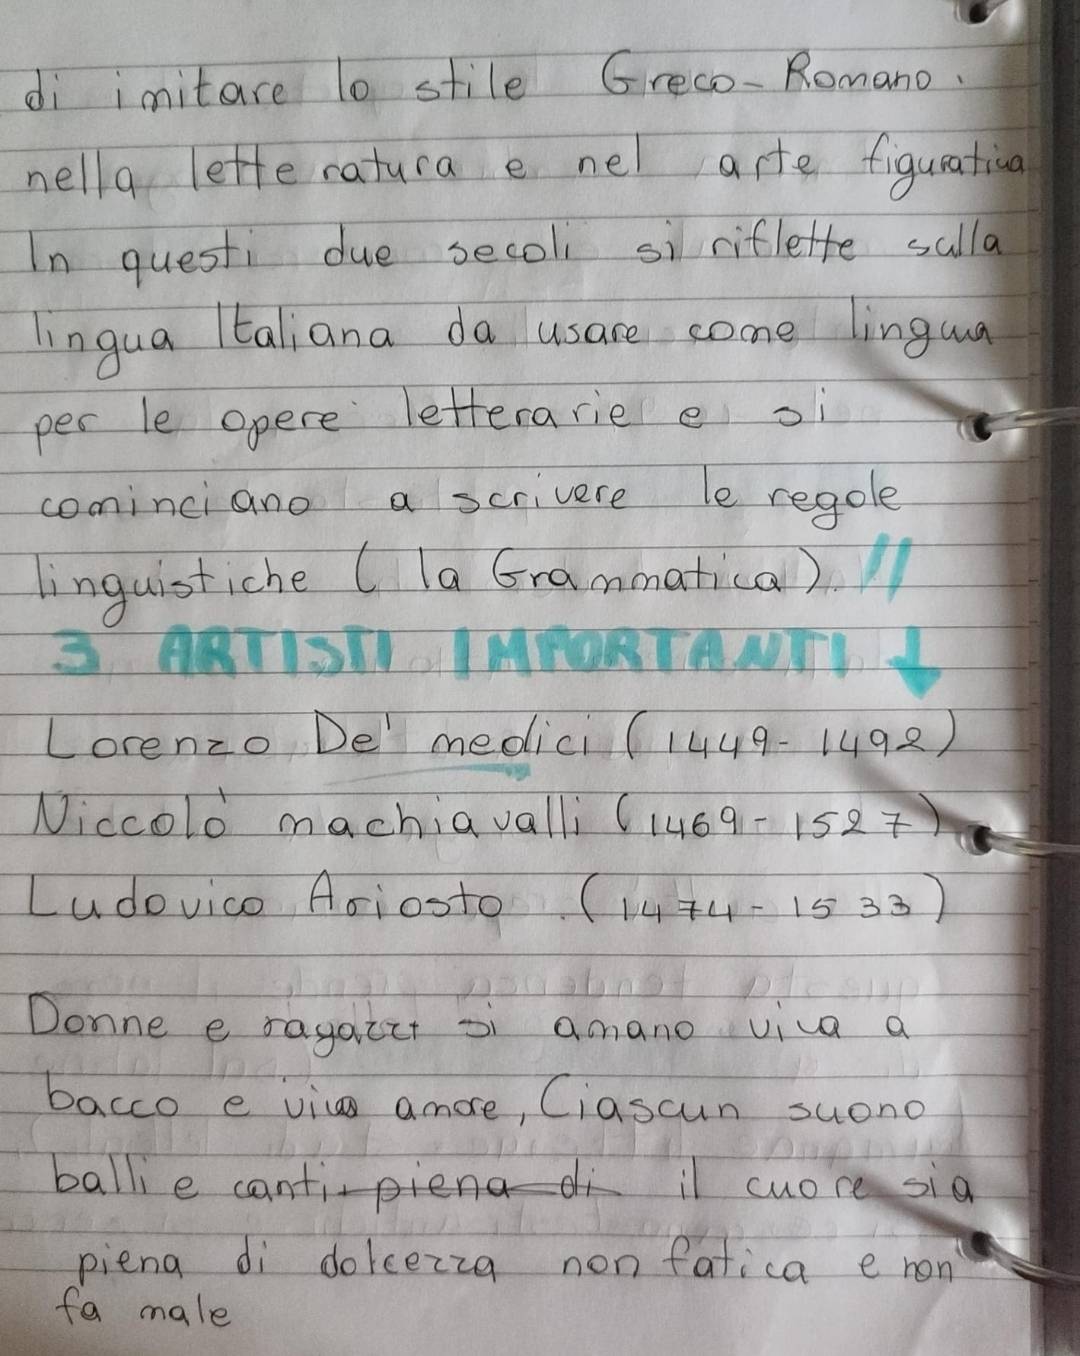 di imitare lo stile Greco-Romano.
nella letteratura e nel arte figurativa
In questi due secoli si riflette sulla
lingua Italiana da usare come lingua
per le opere letterarie e si
cominciano a scrivere le regole
linguistiche ( la Grammatica). //
3 ARTISTI IMPORTANTI ↓
Lorenzo De' medici (1449-1492)
Niccolò machiavalli (1469-1527)
Ludovico Ariosto. (1474-1533)
Donne e ragazzi si amano viva a
bacco e viva amore, Ciascun suono
balli e canti piena di il cuore sia
piena di dolcezza non fatica e non
fa male